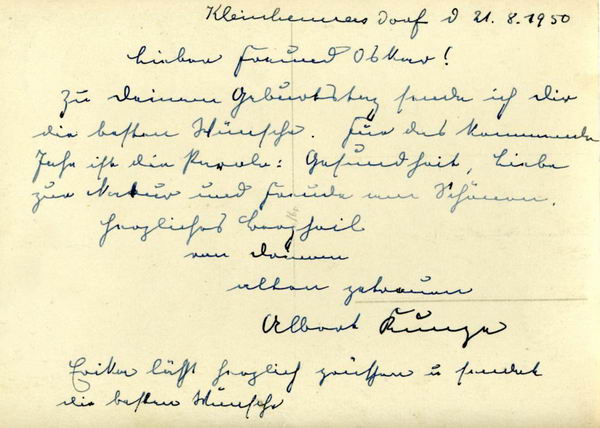 Kleinhennersdorf d 21.8.1950
Lieber Freund Oskar!
Zu deinem Geburtstag sende ich dir
die besten Wünsche. Für das kommende
Jahr ist die Parole: Gesundheit, Liebe
zur Natur und Freude am Schönen.
Herzliches Bergheil
von deinem
alten getreuen
Albert Kunze
Erika läßt herzlich grüßen u sendet
die besten Wünsche